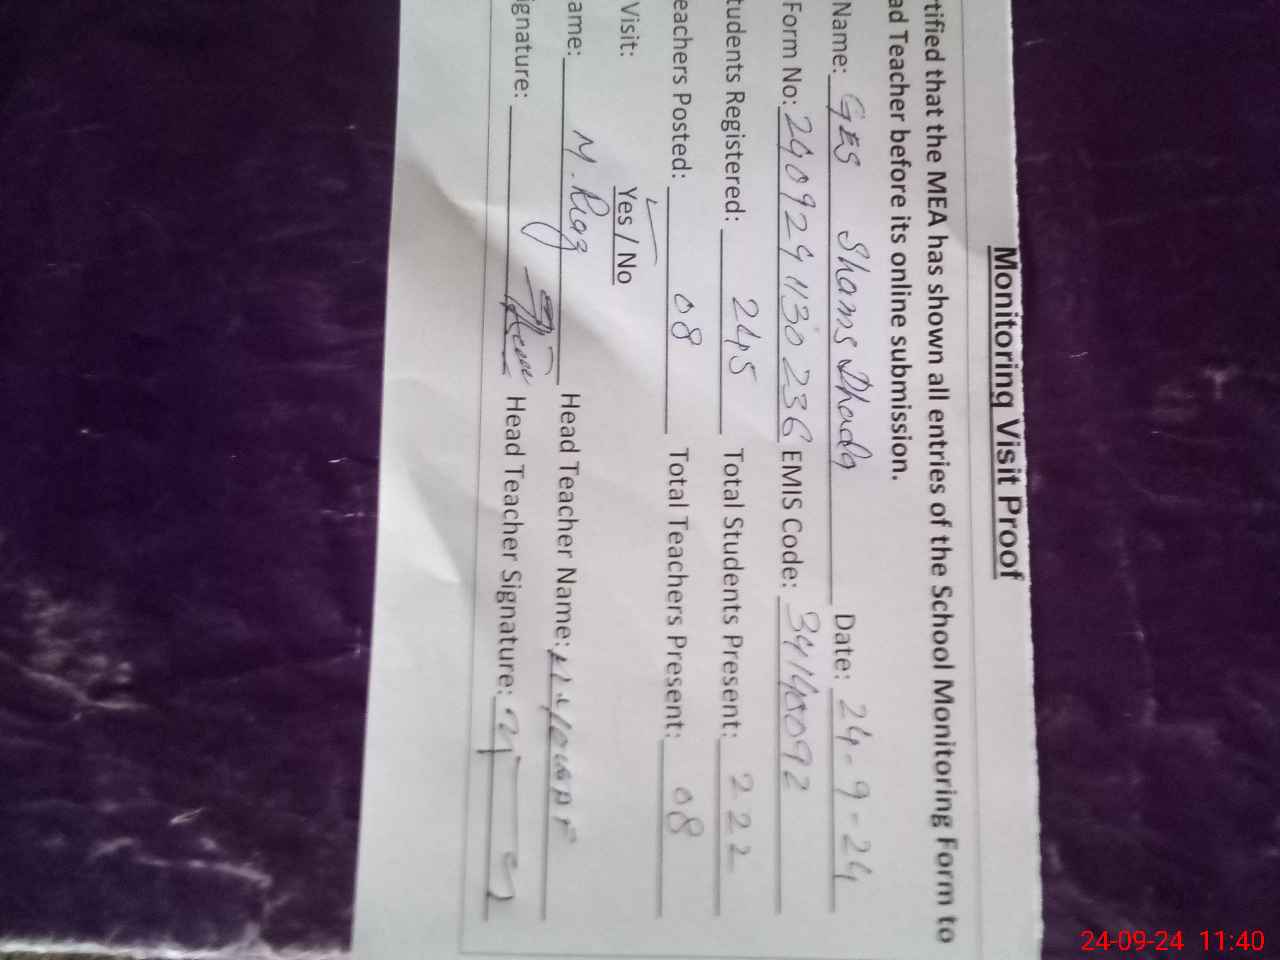 Monitoring Visit Proof
rtified that the MEA has shown all entries of the School Monitoring Form to
ad Teacher before its online submission.
Name: GES Shams Dhada Date: 24-9-24
Form No: 2409241130236 EMIS Code: 34140092
tudents Registered: 245 Total Students Present: 222
eachers Posted: 08 Total Teachers Present: 08
Visit: Yes / No
ame: M. Riaz Head Teacher Name:
ignature: Head Teacher Signature:
24-09-24 11:40